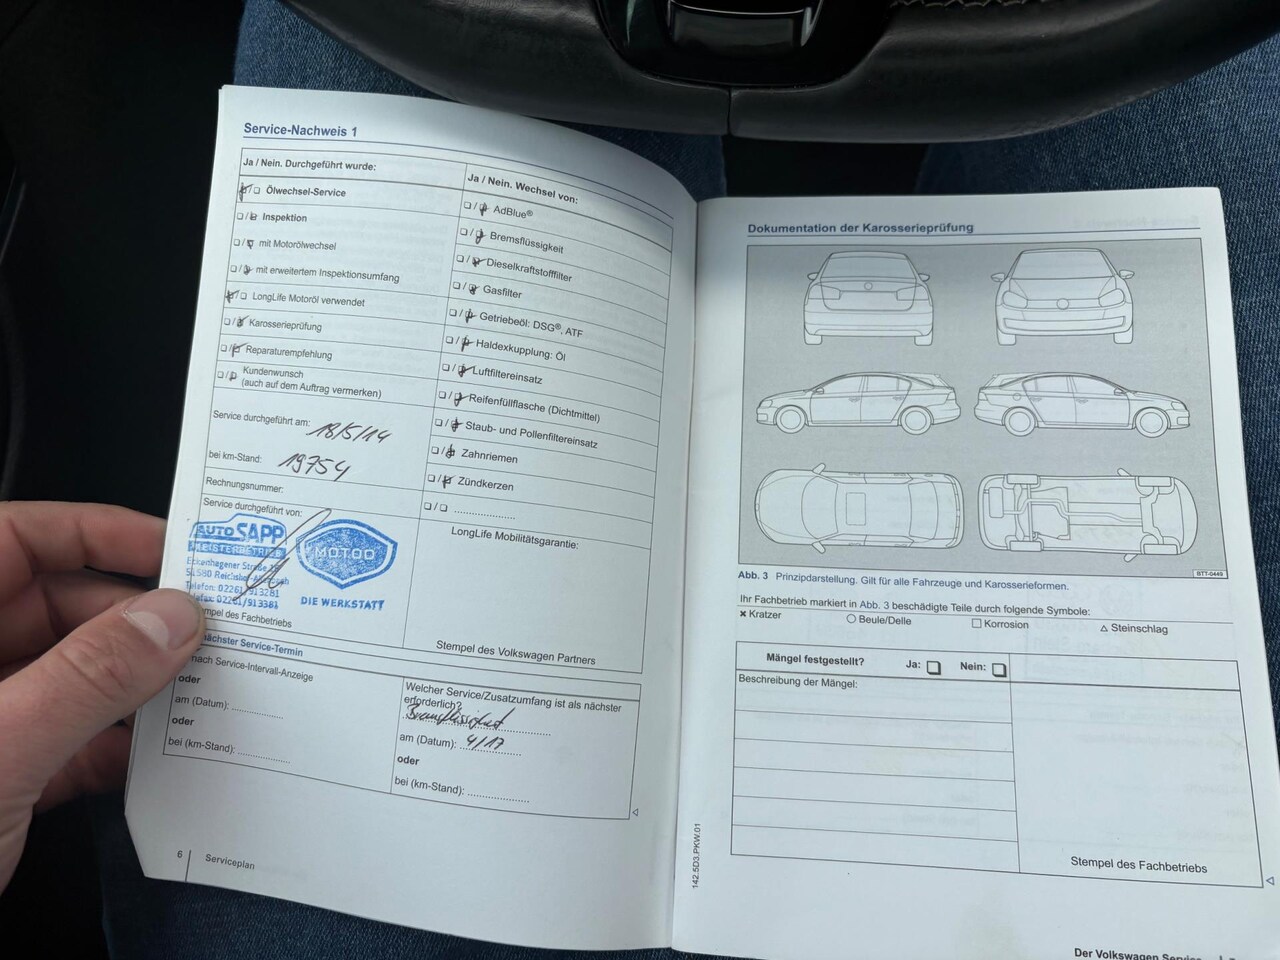 Service-Nachweis 1
Ja / Nein. Durchgeführt wurde:
Ölwechsel-Service
Inspektion
mit Motorölwechsel
mit erweitertem Inspektionsumfang
LongLife Motoröl verwendet
Karosserieprüfung
Reparaturempfehlung
Kundenwunsch
(auch auf dem Auftrag vermerken)
Service durchgeführt am: 18/5/14
bei km-Stand: 19754
Rechnungsnummer:
Service durchgeführt von:
AUTO SAPP
MEISTERBETRIEB
Eckenhagener Straße
51580 Reichshof
Telefon: 02261/913281
Telefax: 02261/913381
MOTOO
DIE WERKSTATT
Stempel des Fachbetriebs
Ja / Nein. Wechsel von:
AdBlue®
Bremsflüssigkeit
Dieselkraftstofffilter
Gasfilter
Getriebeöl: DSG®, ATF
Haldexkupplung: Öl
Luftfiltereinsatz
Reifenfüllflasche (Dichtmittel)
Staub- und Pollenfiltereinsatz
Zahnriemen
Zündkerzen
LongLife Mobilitätsgarantie:
Stempel des Volkswagen Partners
nächster Service-Termin
nach Service-Intervall-Anzeige
oder
am (Datum):
oder
bei (km-Stand):
Welcher Service/Zusatzumfang ist als nächster
erforderlich?
Bremsflüssigkeit
am (Datum): 4/17
oder
bei (km-Stand):
6 Serviceplan
Dokumentation der Karosserieprüfung
BTT-0449
Abb. 3 Prinzipdarstellung. Gilt für alle Fahrzeuge und Karosserieformen.
Ihr Fachbetrieb markiert in Abb. 3 beschädigte Teile durch folgende Symbole:
Kratzer Beule/Delle Korrosion Steinschlag
Mängel festgestellt? Ja: Nein:
Beschreibung der Mängel:
Stempel des Fachbetriebs
142.5D3.PKW.01
Der Volkswagen Service